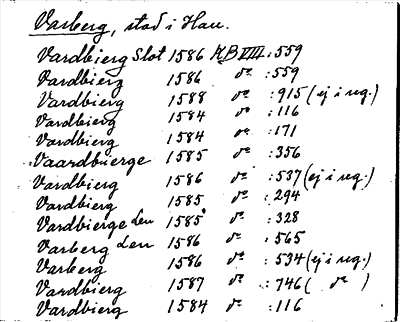 Varberg, stad i Hall.
Vardbierg Slot 1586 KB VIII :559
Vardbierg 1586 do :559
Vardbierg 1588 do :915 (ej i reg.)
Vardbierg 1584 do :116
Vardbierg 1584 do :171
Vaardbierge 1585 do :356
Vardbierg 1586 do :537 (ej i reg.)
Vardbierg 1585 do :294
Vardbierge Len 1585 do :328
Varberg Len 1586 do :565
Varberg 1586 do :534 (ej i reg.)
Vardbierg 1587 do :746 ( do )
Vardbierg 1584 do :116